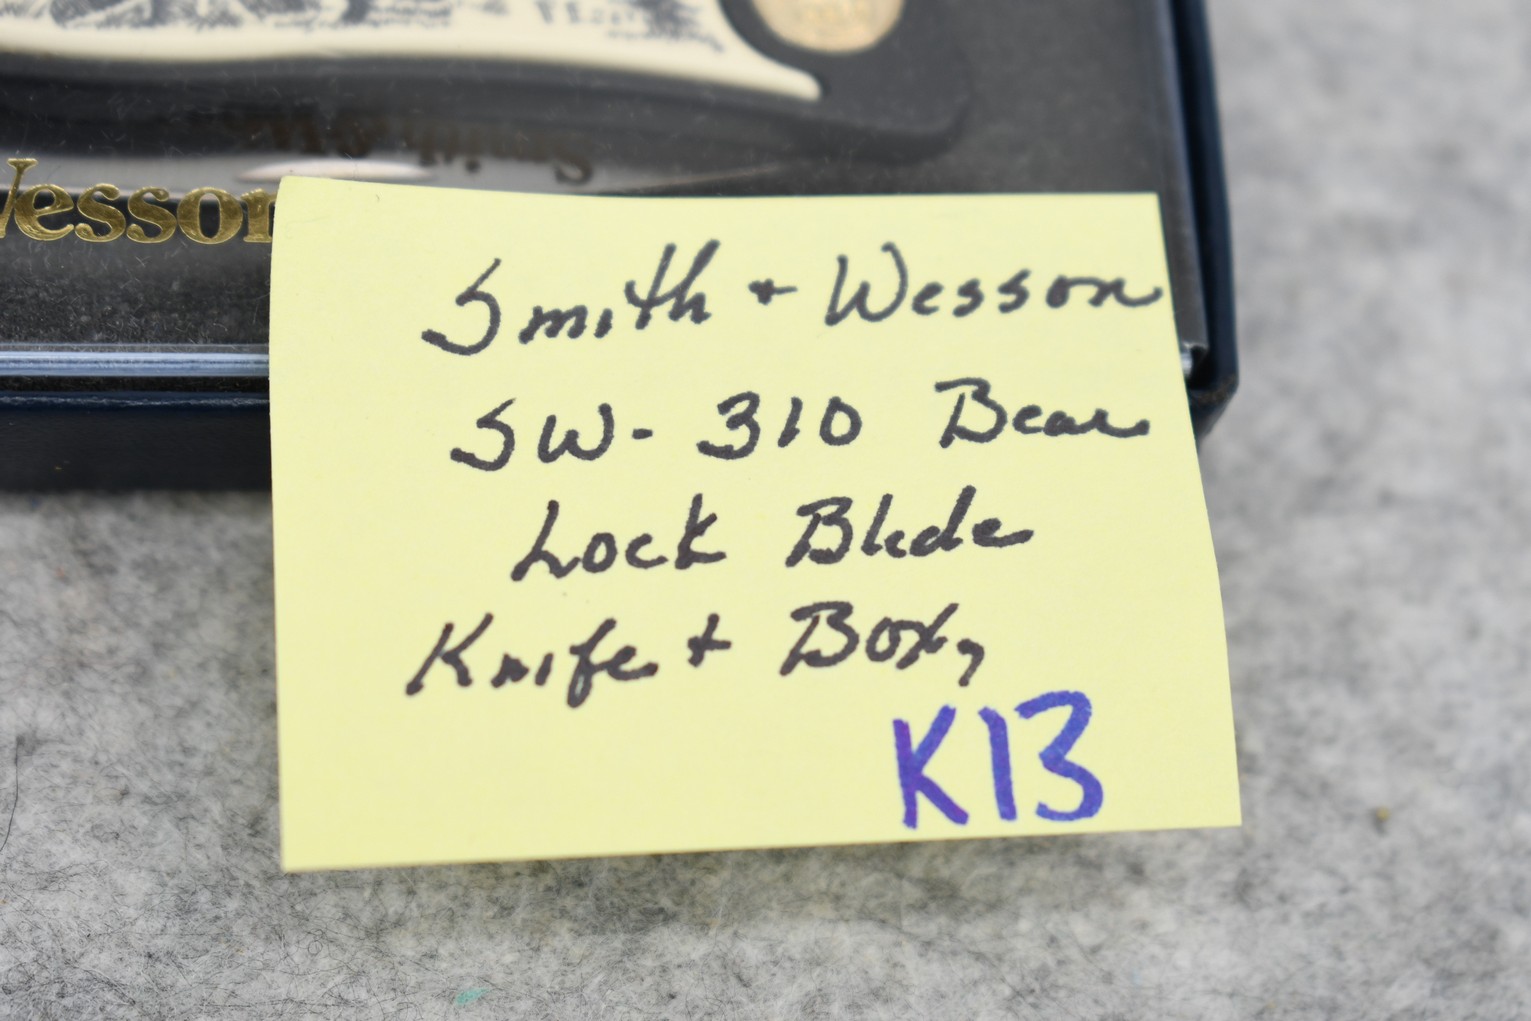 Wesson
Smith + Wesson
SW-310 Bear
Lock Blade
Knife + Box,
K13